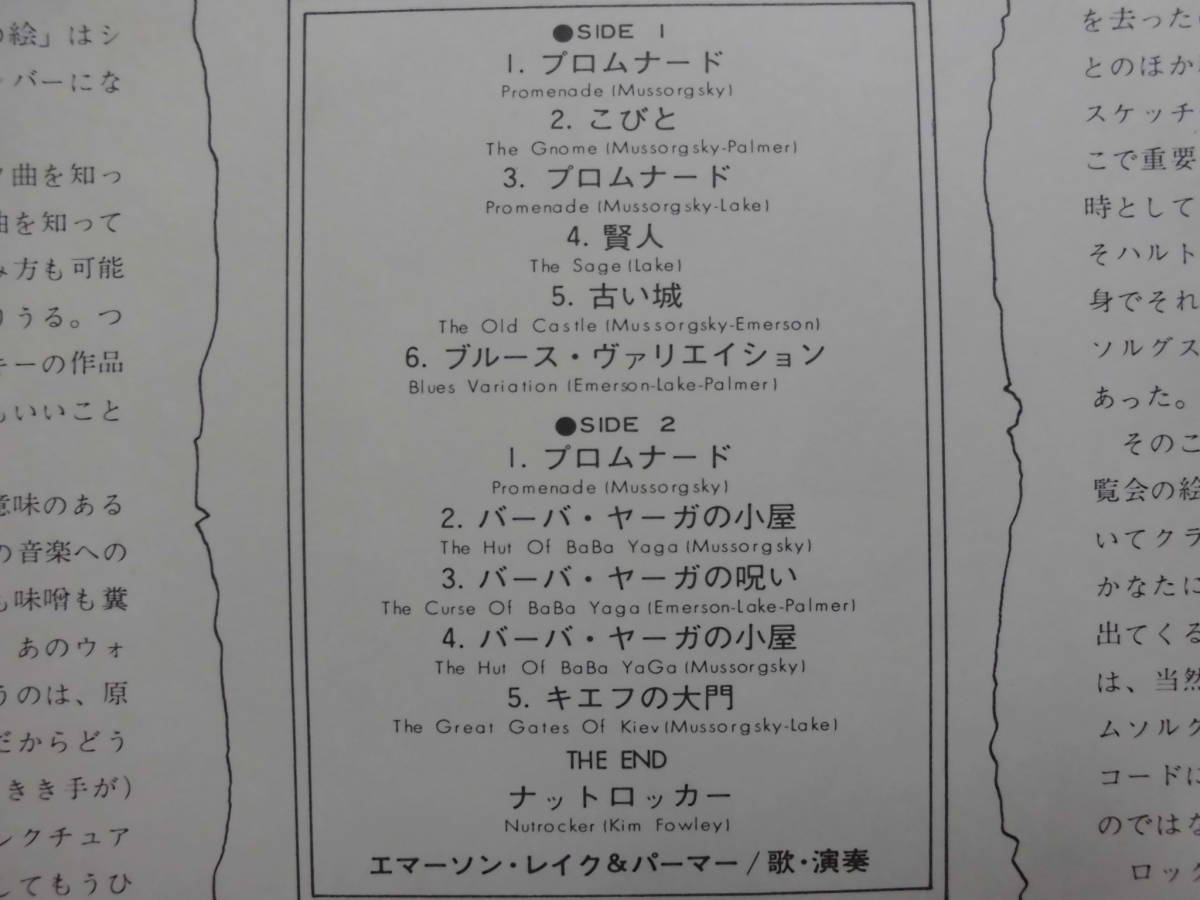 の絵」はシ
バーにな
曲を知っ
曲を知って
み方も可能
りうる。つ
キーの作品
もいいこと
意味のある
の音楽への
も味噌も糞
あのウォ
うのは、原
だからどう
きき手が)
レクチュア
してもうひ
●SIDE 1
1. プロムナード
Promenade (Mussorgsky)
2. こびと
The Gnome (Mussorgsky-Palmer)
3. プロムナード
Promenade (Mussorgsky-Lake)
4. 賢人
The Sage (Lake)
5. 古い城
The Old Castle (Mussorgsky-Emerson)
6. ブルース・ヴァリエイション
Blues Variation (Emerson-Lake-Palmer)
●SIDE 2
1. プロムナード
Promenade (Mussorgsky)
2. バーバ・ヤーガの小屋
The Hut Of BaBa Yaga (Mussorgsky)
3. バーバ・ヤーガの呪い
The Curse Of BaBa Yaga (Emerson-Lake-Palmer)
4. バーバ・ヤーガの小屋
The Hut Of BaBa YaGa (Mussorgsky)
5. キエフの大門
The Great Gates Of Kiev (Mussorgsky-Lake)
THE END
ナットロッカー
Nutrocker (Kim Fowley)
エマーソン・レイク&パーマー/歌・演奏
を去った
とのほか
スケッチ
こで重要
時として
そハルト
身でそれ
ソルグス
あった。
そのこ
覧会の絵
いてクラ
かなたに
出てくる
は、当然
ムソルク
コードに
のではな
ロック